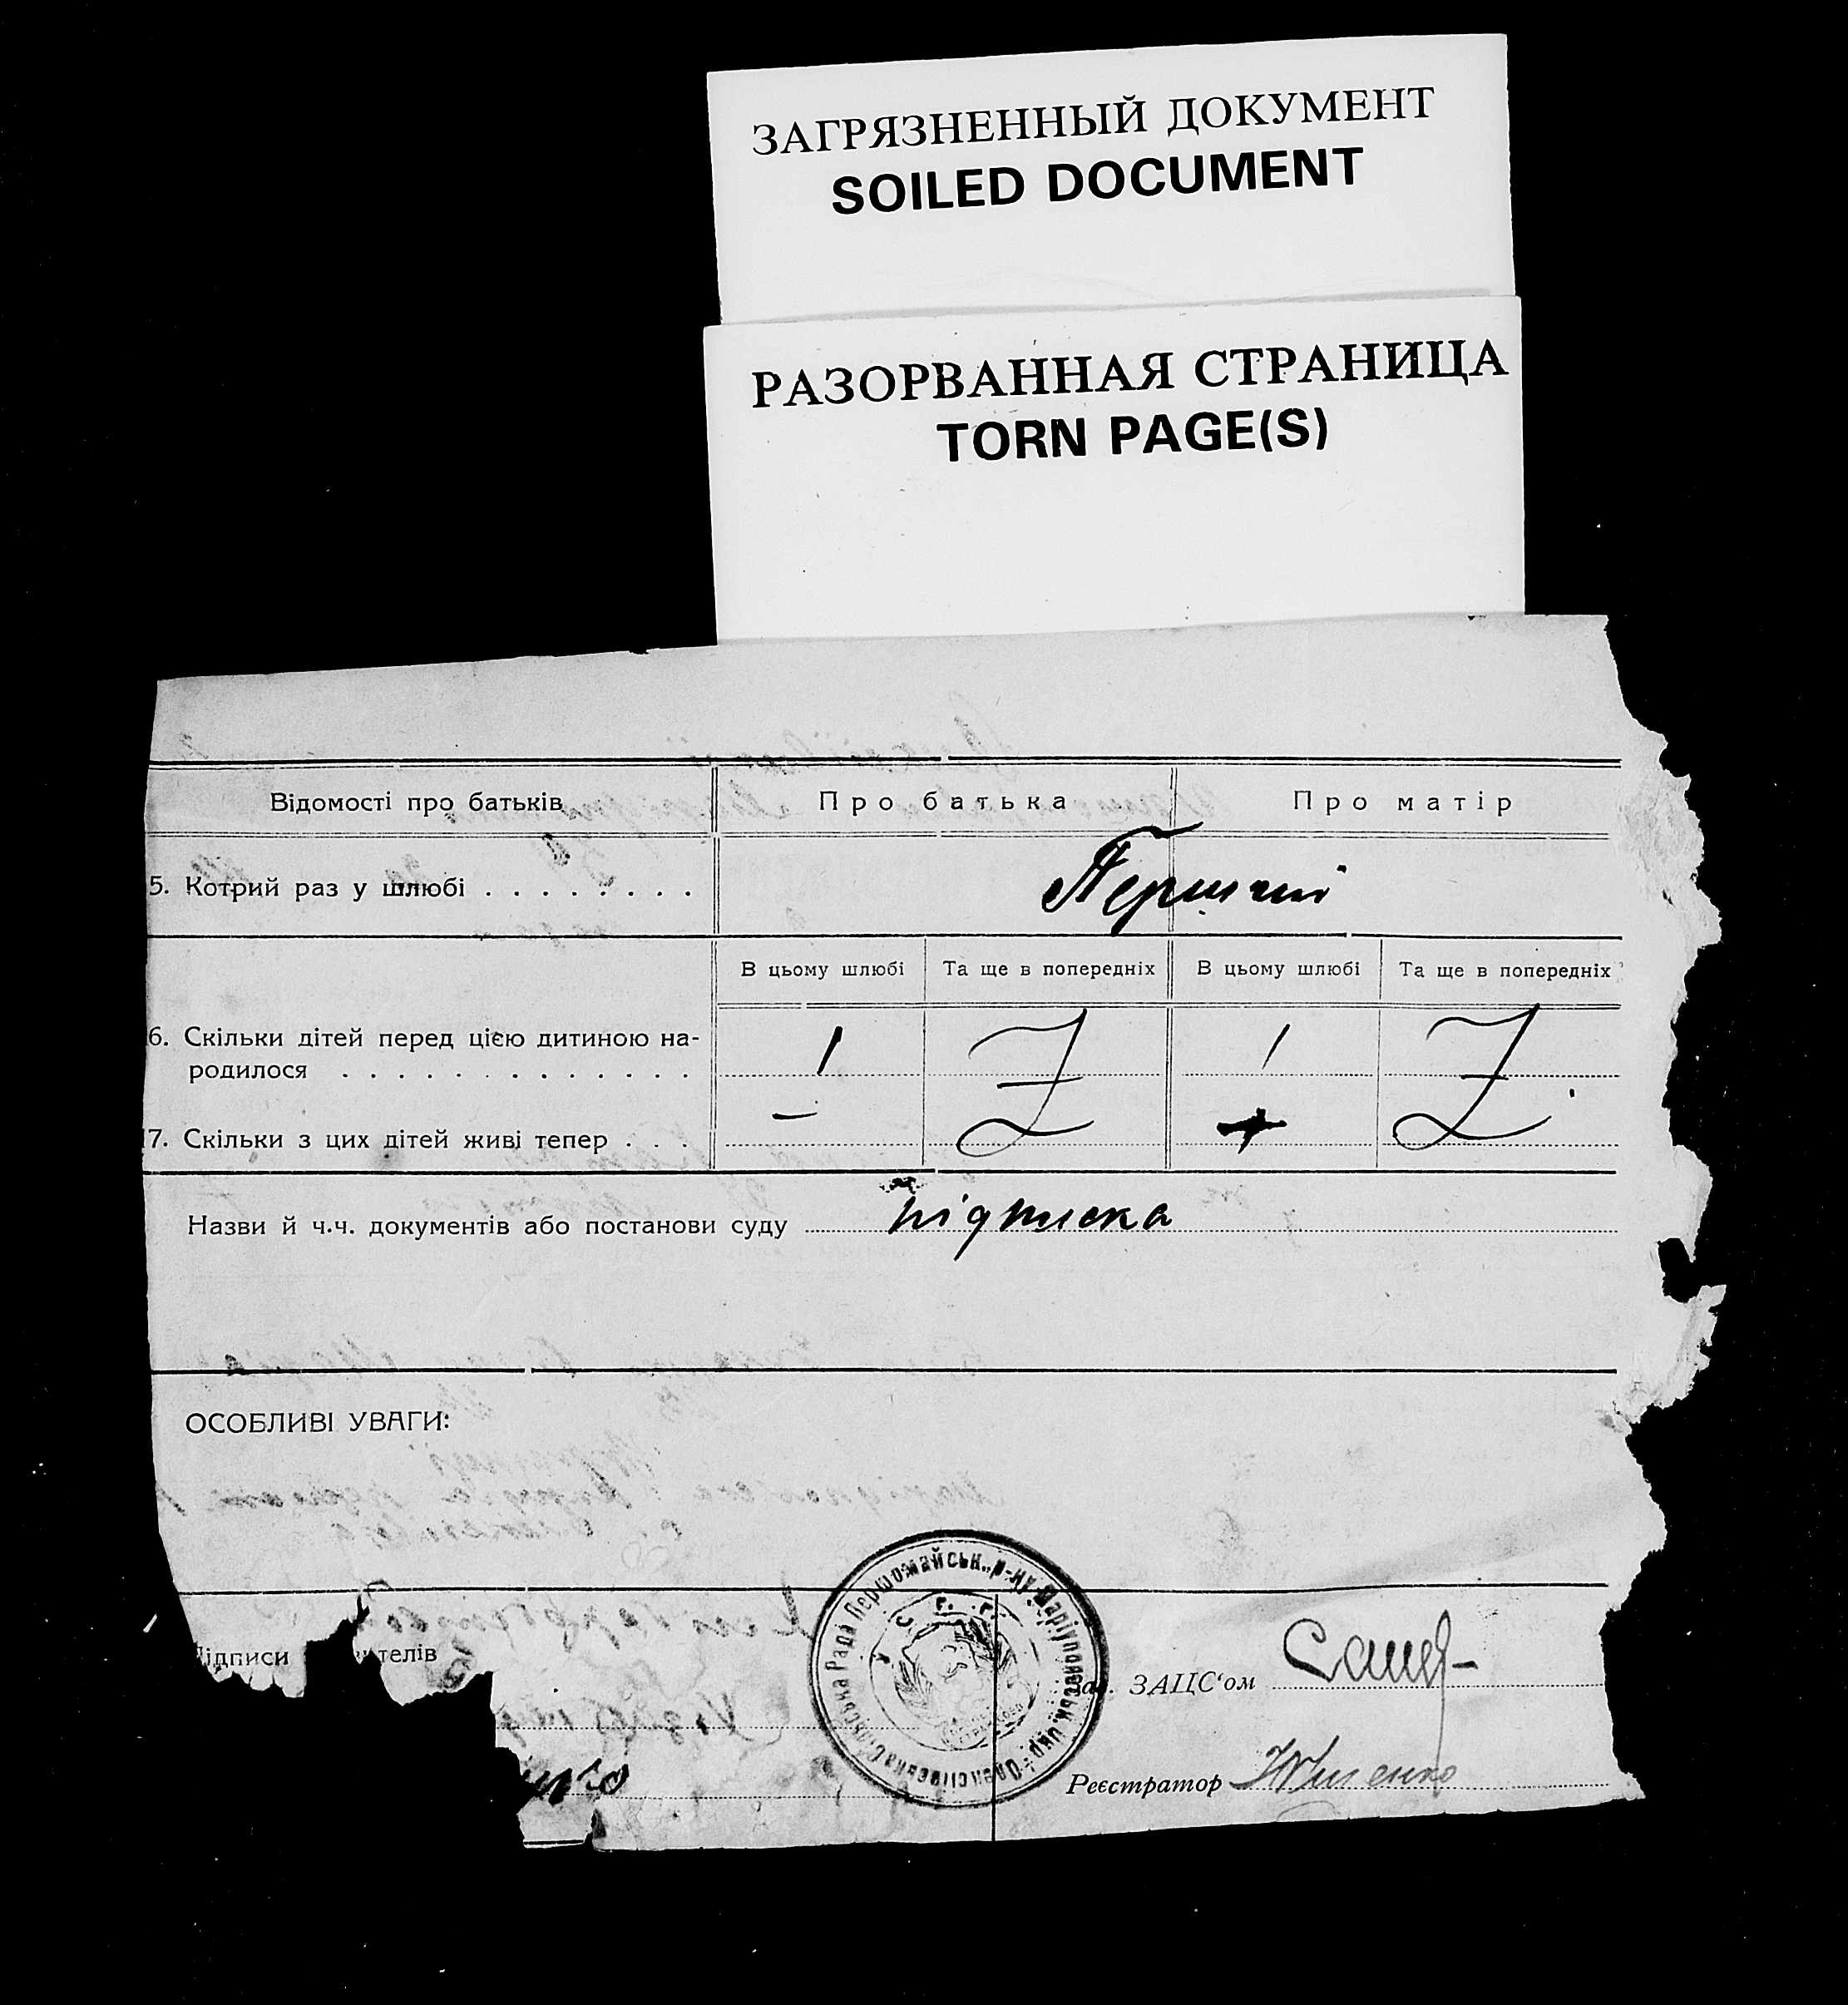 ЗАГРЯЗНЕННЫЙ ДОКУМЕНТ
SOILED DOCUMENT
РАЗОРВАННАЯ СТРАНИЦА
TORN PAGE(S)
Відомості про батьків Про батька Про матір
5. Котрий раз у шлюбі . . . . . . . . Перший
В цьому шлюбі Та ще в попередніх В цьому шлюбі Та ще в попередніх
6. Скільки дітей перед цією дитиною на-
родилося . . . . . . . . . . . . . 1 Z 1 Z
7. Скільки з цих дітей живі тепер . . . –
Назви й ч.ч. документів або постанови суду підписка
ОСОБЛИВІ УВАГИ:
Сільська Раді Першомайськ. р-ну Маріупольськ. окр.
У. С. Р. Р.
ідписи телів
ЗАЦС‘ом
Реєстратор